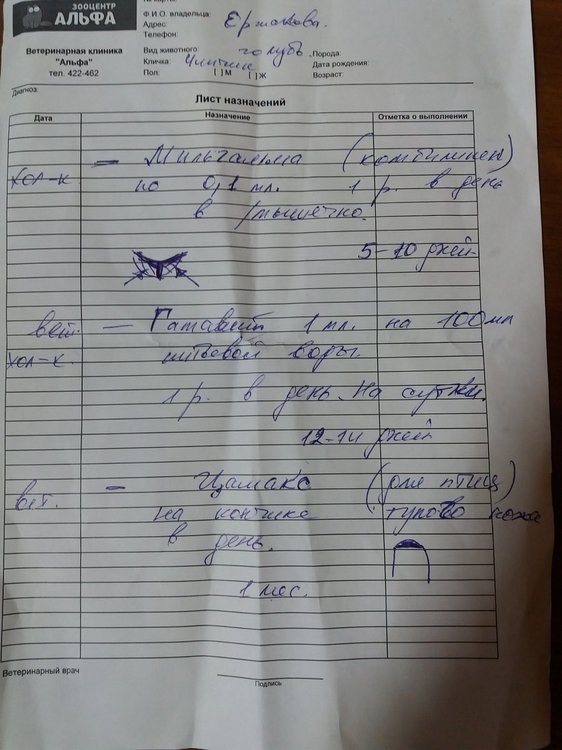 № карты:
ЗООЦЕНТР
АЛЬФА
Ветеринарная клиника
"Альфа"
тел. 422-462
Ф.И.О. владельца: Ермакова.
Адрес:
Телефон:
Вид животного: голубь Порода:
Кличка: Дата рождения:
Пол: [ ] М [ ] Ж Возраст:
Диагноз:
Лист назначений
Дата Назначение Отметка о выполнении
— Мильгамма (комбилипен)
хол-к по 0,1 мл. 1 р. в день
в/мышечно.
5-10 дней
вет. — Гамавит 1 мл. на 100мл
хол-к питьевой воды.
1 р. в день. на сутки.
12-14 дней
вет. — Цамакс (для птиц)
на кончике тупого ножа
в день.
1 мес.
Ветеринарный врач
Подпись